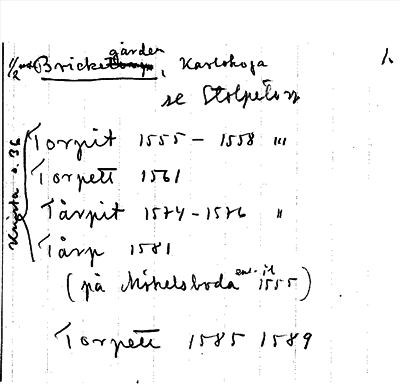 1/2 mtl Bricketorpgården, Karlskoga 1.
se Stolpetorp
Torpit 1555 – 1558 "'
Torpett 1561
Tårpit 1574 – 1576 "
Tårp 1581
(på Möhelsboda enl. jb 1555)
Torpett 1585 1589
s. 36